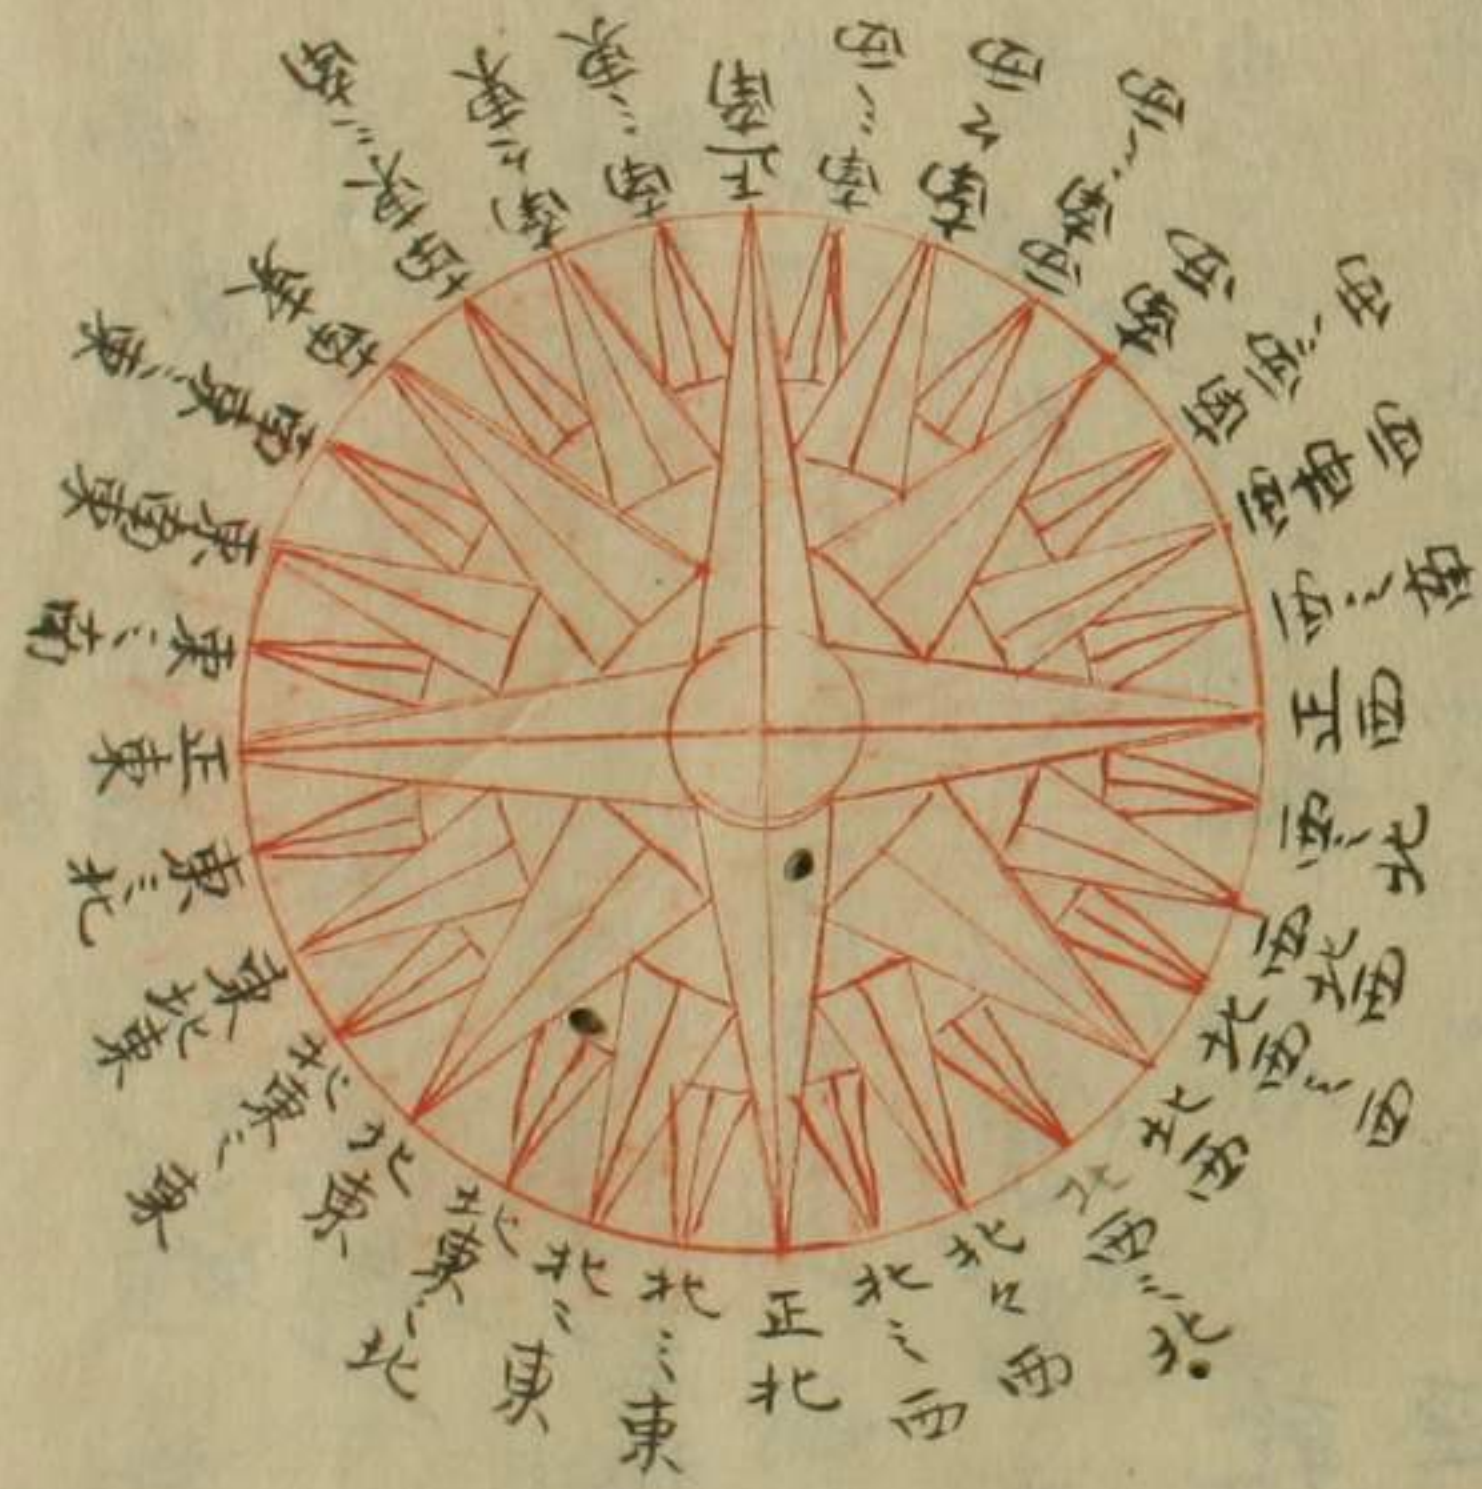 正北
北ミ東
北〻東
北東ミ北
北東
北東ミ東
東北東
東ミ北
正東
東ミ南
東南東
南東ミ東
南東
南東ミ南
南〻東
南ミ東
正南
南ミ西
南〻西
西南ミ西
南西
南西ミ西
西南西
西ミ南
正西
西ミ北
西北西
北西ミ西
北西
北西ミ北
北〻西
北ミ西